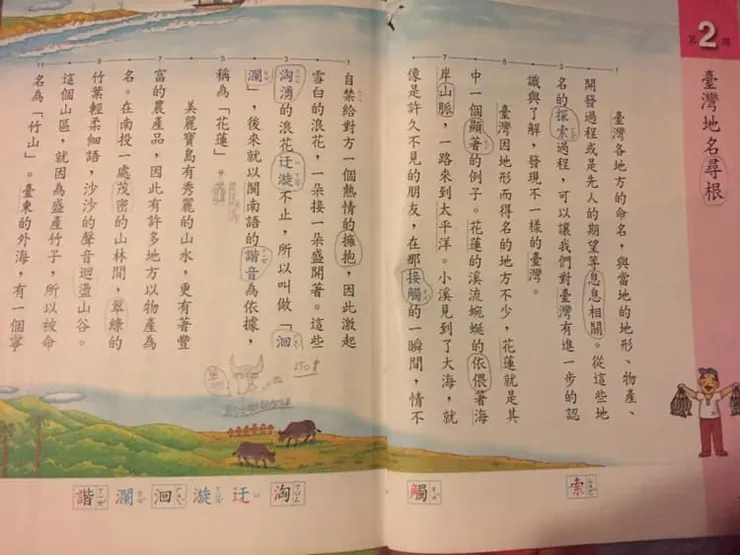 第2課
臺灣地名尋根
臺灣各地方的命名,與當地的地形、物產、
開發過程或是先人的期望等息息相關。從這些地
名的探索過程,可以讓我們對臺灣有進一步的認
識與了解,發現不一樣的臺灣。
臺灣因地形而得名的地方不少,花蓮就是其
中一個顯著的例子。花蓮的溪流蜿蜒的依偎著海
岸山脈,一路來到太平洋。小溪見到了大海,就
像是許久不見的朋友,在那接觸的一瞬間,情不
自禁給對方一個熱情的擁抱,因此激起
雪白的浪花,一朵接一朵盛開著。這些
洶湧的浪花迂漩不止,所以叫做「洄
瀾」,後來就以閩南語的諧音為依據,
稱為「花蓮」。
美麗寶島有秀麗的山水,更有著豐
富的農產品,因此有許多地方以物產為
名。在南投一處茂密的山林間,翠綠的
竹葉輕柔細語,沙沙的聲音迴盪山谷。
這個山區,就因為盛產竹子,所以被命
名為「竹山」。臺東的外海,有一個寧
索
觸
洶
迂
漩
洄
瀾
諧